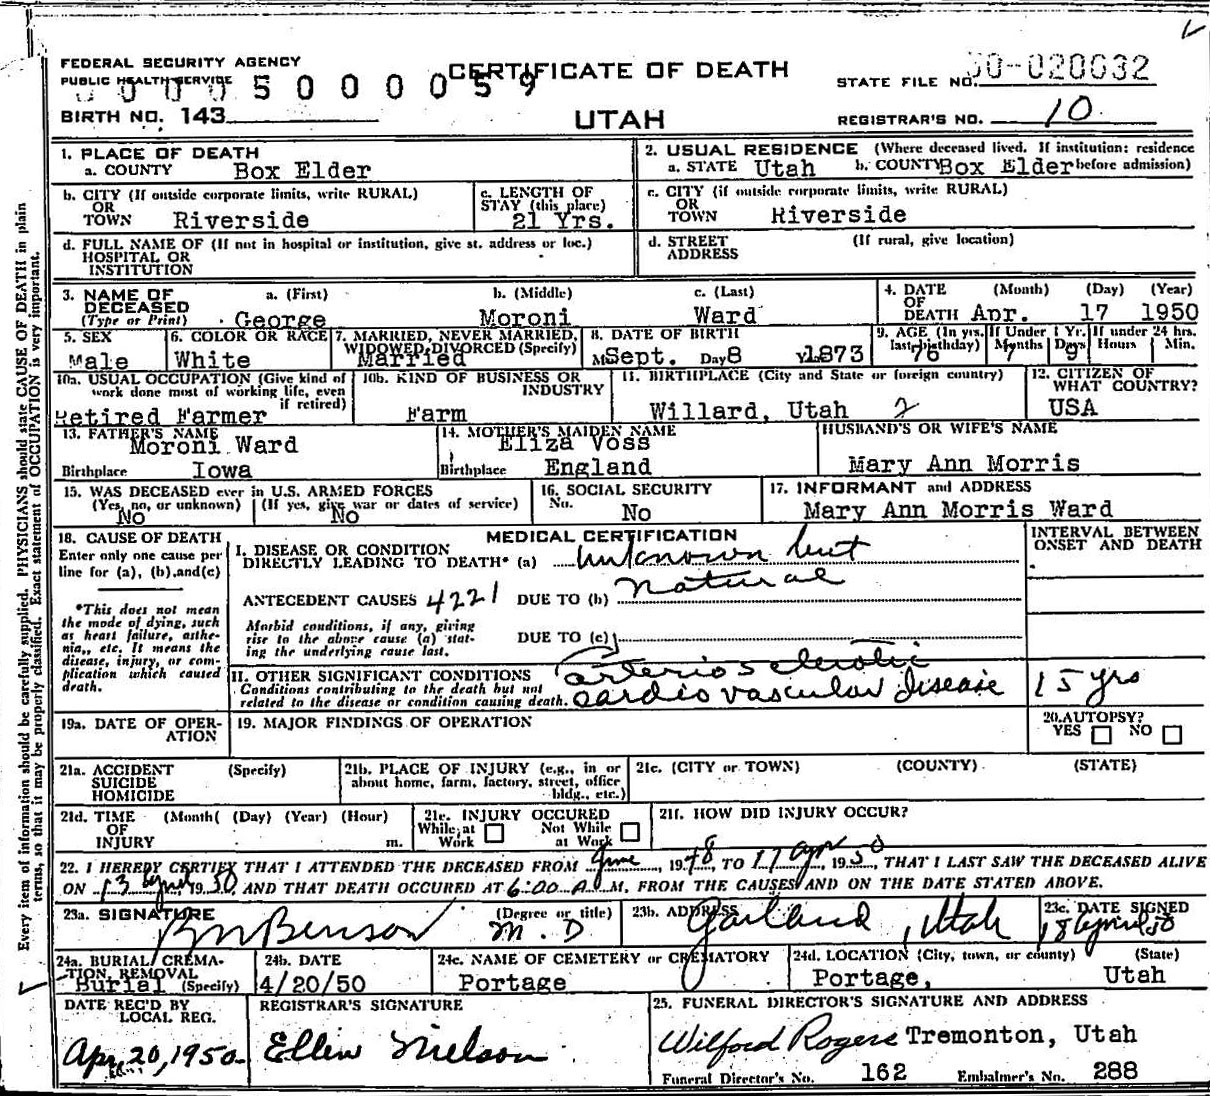 FEDERAL SECURITY AGENCY
PUBLIC HEALTH SERVICE
CERTIFICATE OF DEATH
STATE FILE NO. 50-020032
0005000059
BIRTH NO. 143
UTAH
REGISTRAR'S NO. 10
1. PLACE OF DEATH
a. COUNTY Box Elder
2. USUAL RESIDENCE (Where deceased lived. If institution: residence
a. STATE Utah b. COUNTY Box Elder before admission)
b. CITY (If outside corporate limits, write RURAL)
OR
TOWN Riverside
c. LENGTH OF
STAY (this place)
21 Yrs.
c. CITY (if outside corporate limits, write RURAL)
OR
TOWN Riverside
d. FULL NAME OF (If not in hospital or institution, give st. address or loc.)
HOSPITAL OR
INSTITUTION
d. STREET (If rural, give location)
ADDRESS
3. NAME OF DECEASED
(Type or Print)
a. (First) b. (Middle) c. (Last)
George Moroni Ward
4. DATE (Month) (Day) (Year)
OF
DEATH Apr. 17 1950
5. SEX
Male
6. COLOR OR RACE
White
7. MARRIED, NEVER MARRIED,
WIDOWED, DIVORCED (Specify)
Married
8. DATE OF BIRTH
M Sept. Day 8 Y 1873
9. AGE (In yrs. last birthday)
76
If Under 1 Yr.
Months Days
7 9
If under 24 hrs.
Hours Min.
10a. USUAL OCCUPATION (Give kind of
work done most of working life, even
if retired)
Retired Farmer
10b. KIND OF BUSINESS OR
INDUSTRY
Farm
11. BIRTHPLACE (City and State or foreign country)
Willard, Utah 2
12. CITIZEN OF
WHAT COUNTRY?
USA
13. FATHER'S NAME
Moroni Ward
Birthplace Iowa
14. MOTHER'S MAIDEN NAME
Eliza Voss
Birthplace England
HUSBAND'S OR WIFE'S NAME
Mary Ann Morris
15. WAS DECEASED ever in U.S. ARMED FORCES
(Yes, no, or unknown) (If yes, give war or dates of service)
No No
16. SOCIAL SECURITY
No. No
17. INFORMANT and ADDRESS
Mary Ann Morris Ward
18. CAUSE OF DEATH
Enter only one cause per
line for (a), (b), and (c)
*This does not mean
the mode of dying, such
as heart failure, asthe-
nia,, etc. It means the
disease, injury, or com-
plication which caused
death.
MEDICAL CERTIFICATION
INTERVAL BETWEEN
ONSET AND DEATH
I. DISEASE OR CONDITION
DIRECTLY LEADING TO DEATH* (a) unknown but
natural
ANTECEDENT CAUSES 4221 DUE TO (b)
Morbid conditions, if any, giving
rise to the above cause (a) stat-
ing the underlying cause last.
DUE TO (c)
II. OTHER SIGNIFICANT CONDITIONS
Conditions contributing to the death but not
related to the disease or condition causing death.
arteriosclerotic
cardiovascular disease 15 yrs
19a. DATE OF OPER-
ATION
19. MAJOR FINDINGS OF OPERATION
20. AUTOPSY?
YES NO
21a. ACCIDENT (Specify)
SUICIDE
HOMICIDE
21b. PLACE OF INJURY (e.g., in or
about home, farm, factory, street, office
bldg., etc.)
21c. (CITY or TOWN) (COUNTY) (STATE)
21d. TIME (Month( (Day) (Year) (Hour)
OF
INJURY m.
21e. INJURY OCCURED
While at Work Not While at Work
21f. HOW DID INJURY OCCUR?
22. I HEREBY CERTIFY THAT I ATTENDED THE DECEASED FROM June, 1948, TO 17 Apr, 1950, THAT I LAST SAW THE DECEASED ALIVE
ON 13 April, 1950, AND THAT DEATH OCCURED AT 6:00 A.M. FROM THE CAUSES AND ON THE DATE STATED ABOVE.
23a. SIGNATURE (Degree or title)
Benson M.D
23b. ADDRESS
Garland, Utah
23c. DATE SIGNED
18 April 50
24a. BURIAL, CREMA-
TION, REMOVAL
Burial (Specify)
24b. DATE
4/20/50
24c. NAME OF CEMETERY or CREMATORY
Portage
24d. LOCATION (City, town, or county) (State)
Portage, Utah
DATE REC'D BY
LOCAL REG.
Apr. 20, 1950
REGISTRAR'S SIGNATURE
Ellen Nielson
25. FUNERAL DIRECTOR'S SIGNATURE AND ADDRESS
Wilford Rogers Tremonton, Utah
Funeral Director's No. 162 Embalmer's No. 288
Every item of information should be carefully supplied. PHYSICIANS should state CAUSE OF DEATH in plain
terms, so that it may be properly classified. Exact statement of OCCUPATION is very important.